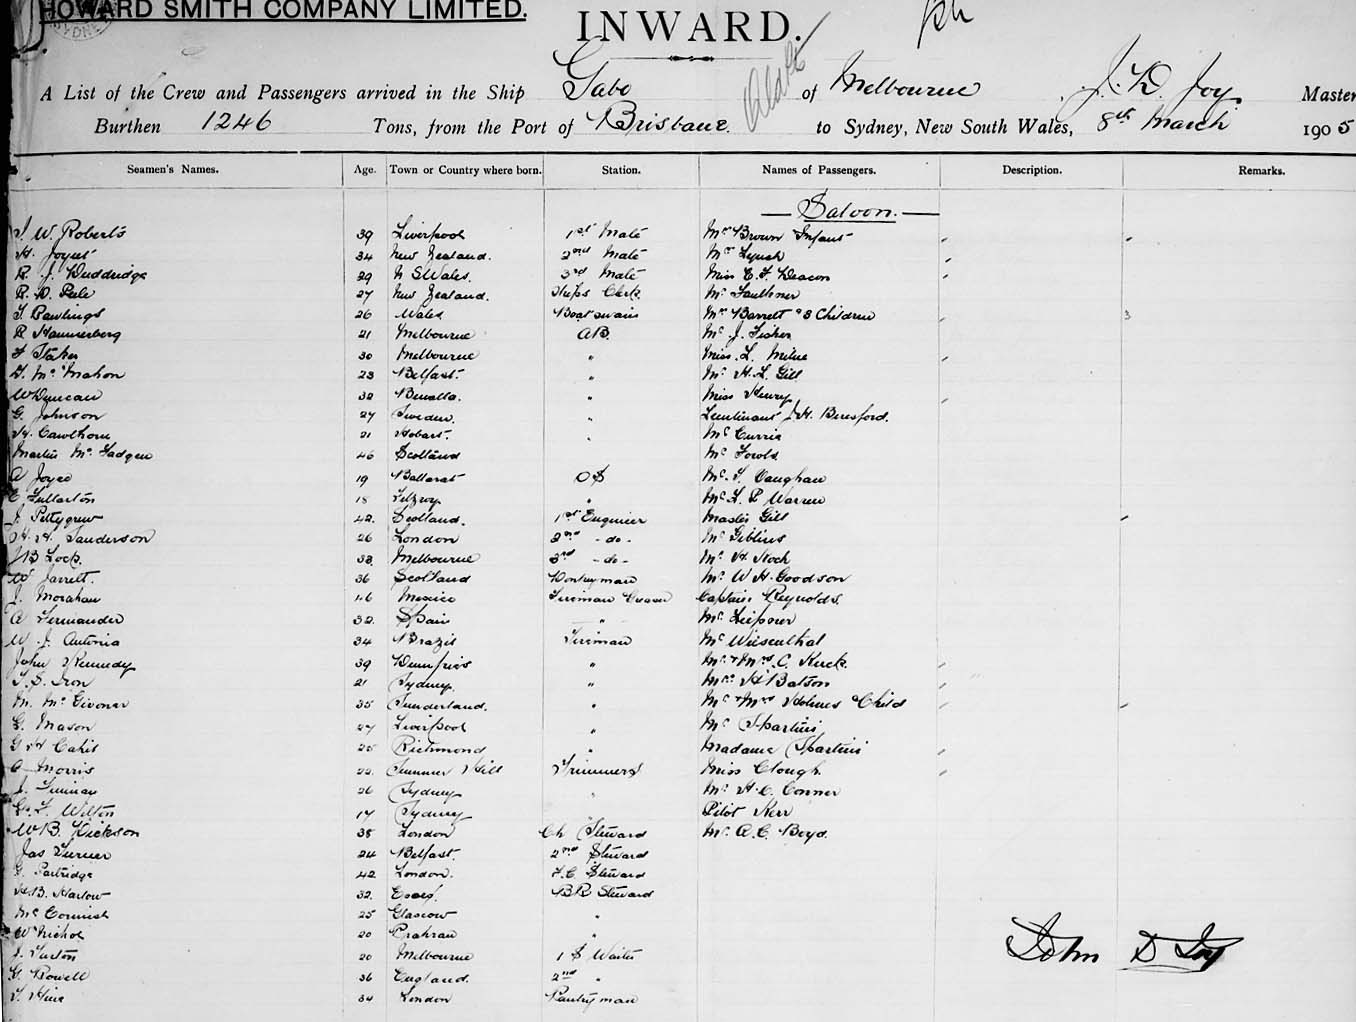 HOWARD SMITH COMPANY LIMITED.
INWARD.
A List of the Crew and Passengers arrived in the Ship Gabo of Melbourne, J. D. Joy Master
Burthen 1246 Tons, from the Port of Brisbane. to Sydney, New South Wales, 8th March 1905
Seamen's Names. Age. Town or Country where born. Station. Names of Passengers. Description. Remarks.
— Saloon. —
W. Roberts 39 Liverpool 1st Mate Brown Infant
34 New Zealand. 2nd Mate Lynch
R. J. Duddridge 29 N S Wales. 3rd Mate Miss Deacon
27 New Zealand. Ships Clerk. Mr Faulkner
Rawlings 26 Wales Boatswain Barrett 3 Children 3
R Hannerberg 21 Melbourne A.B. Mr J. Fisher
30 Melbourne " Miss L. Milne
Mc Mahon 23 Belfast. " Mr H. L. Gill
W Duncan 32 Benalla. " Miss Henry
G. Johnson 27 Sweden. " Lieutenant Beresford.
H. Cawthorn 21 Hobart. " Mr Currie
Martin Mc Fadgen 46 Scotland Mr Fowls
A Joyce 19 Ballarat O S Mr Vaughan
Fullarton 18 Fitzroy " Mr L. P Warren
J. Pettygrew 42. Scotland. 1st Engineer Master Gill
H. H. Sanderson 26 London 2nd - do - Mr Giblins
J B Lock. 33. Melbourne 3rd - do - Mr H. Stock
W Jarrett. 36 Scotland Donkeyman Mr W H. Goodson
J. Morahan 46 Mexico Captain Reynolds.
A Fernander 32. Spain "
W. J. Antonia 34 Brazil Fireman Mr Wiesenthal
John Kennedy 39 Dumfries " Mr & Mrs C.
21 Sydney. " H Batson
M. Mc Givoner 35 Sunderland. " Mr & Mrs Holmes & Child
G. Mason 27 Liverpool " Mr
Cahil 25 Richmond " Madame
A Morris 22. Summer Hill Trimmers Miss Clough.
J. 26 Sydney " Mr H. C. Conner
Wilton 17 Sydney Pilot Kerr
W B. Dickson 38 London Ch Steward Mr A. C. Boyd.
Jas Turner 24 Belfast. 2nd Steward
G. Partridge 42 London. F. C. Steward
H. B. Harlow 32. Essex. B R Steward
25 Glasgow "
W Nichol 20 Prahran "
20 Melbourne 1 S Waiter
G. Powell 36 England. 2nd "
34 London Pantryman
John D Joy